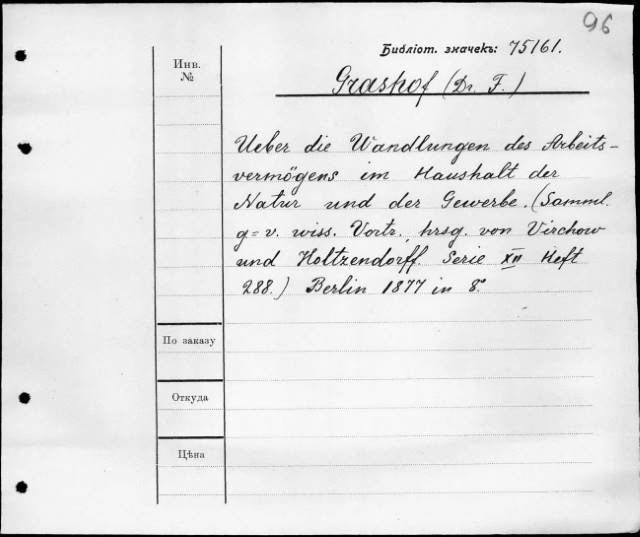 96
Библіот. значекъ: 75161.
Инв.
№
Grashof (Dr. F.)
Ueber die Wandlungen des Arbeits-
vermögens im Haushalt der
Natur und der Gewerbe. (Samml.
g=v. wiss. Vortr. hrsg. von Virchow
und Holtzendorff. Serie XII Heft
288.) Berlin 1877 in 8º
По заказу
Откуда
Цѣна